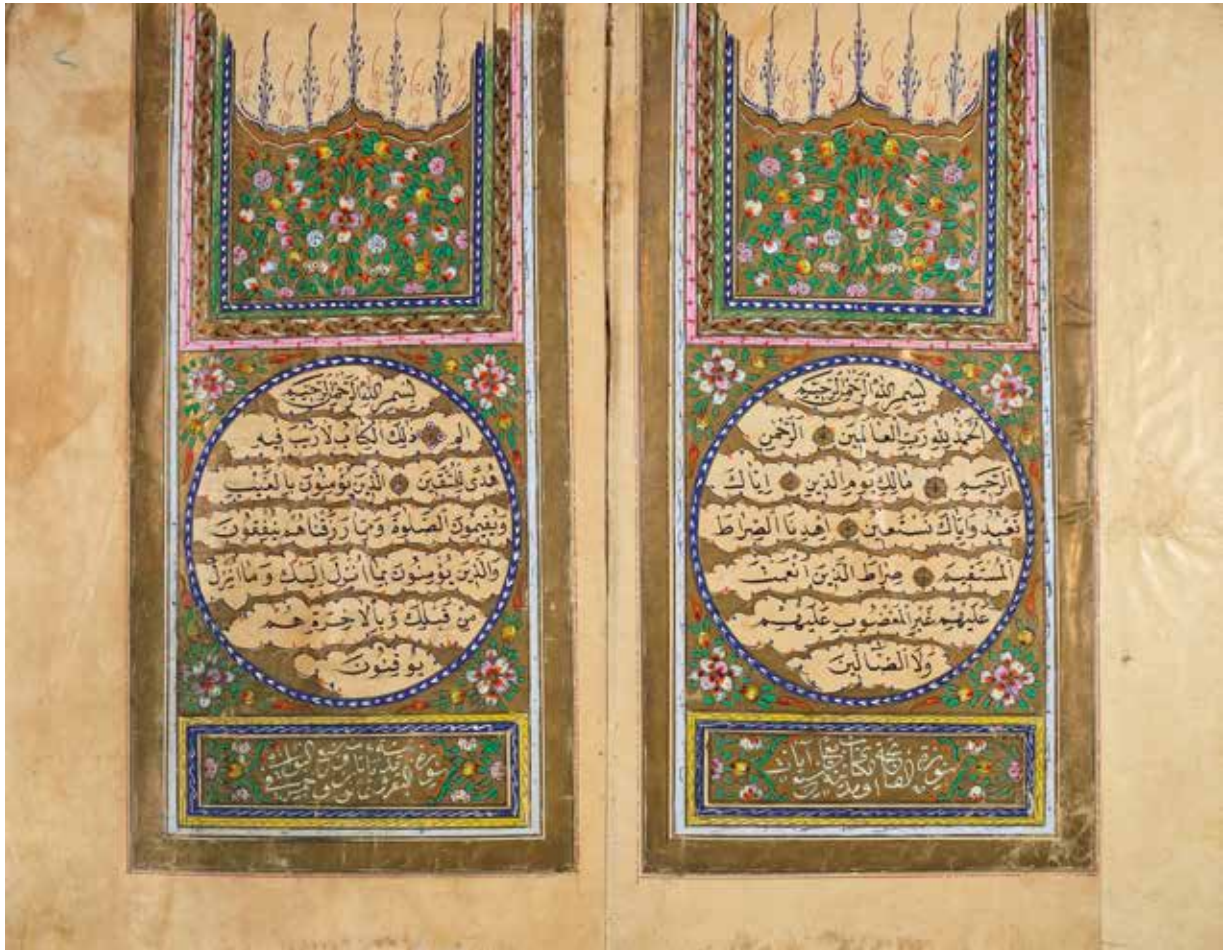 بِسْمِ اللّٰهِ الرَّحْمٰنِ الرَّحِيمِ
اَلْحَمْدُ لِلّٰهِ رَبِّ الْعَالَمِينَ الرَّحْمٰنِ
الرَّحِيمِ مَالِكِ يَوْمِ الدِّينِ اِيَّاكَ
نَعْبُدُ وَاِيَّاكَ نَسْتَعِينُ اِهْدِنَا الصِّرَاطَ
الْمُسْتَقِيمَ صِرَاطَ الَّذِينَ اَنْعَمْتَ
عَلَيْهِمْ غَيْرِ الْمَغْضُوبِ عَلَيْهِمْ
وَلَا الضَّالِّينَ
سورة
بِسْمِ اللّٰهِ الرَّحْمٰنِ الرَّحِيمِ
الم ذٰلِكَ الْكِتَابُ لَا رَيْبَ فِيهِ
هُدًى لِلْمُتَّقِينَ الَّذِينَ يُؤْمِنُونَ بِالْغَيْبِ
وَيُقِيمُونَ الصَّلٰوةَ وَمِمَّا رَزَقْنَاهُمْ يُنْفِقُونَ
وَالَّذِينَ يُؤْمِنُونَ بِمَا اُنْزِلَ اِلَيْكَ وَمَا اُنْزِلَ
مِنْ قَبْلِكَ وَبِالْاٰخِرَةِ هُمْ
يُوقِنُونَ
سورة